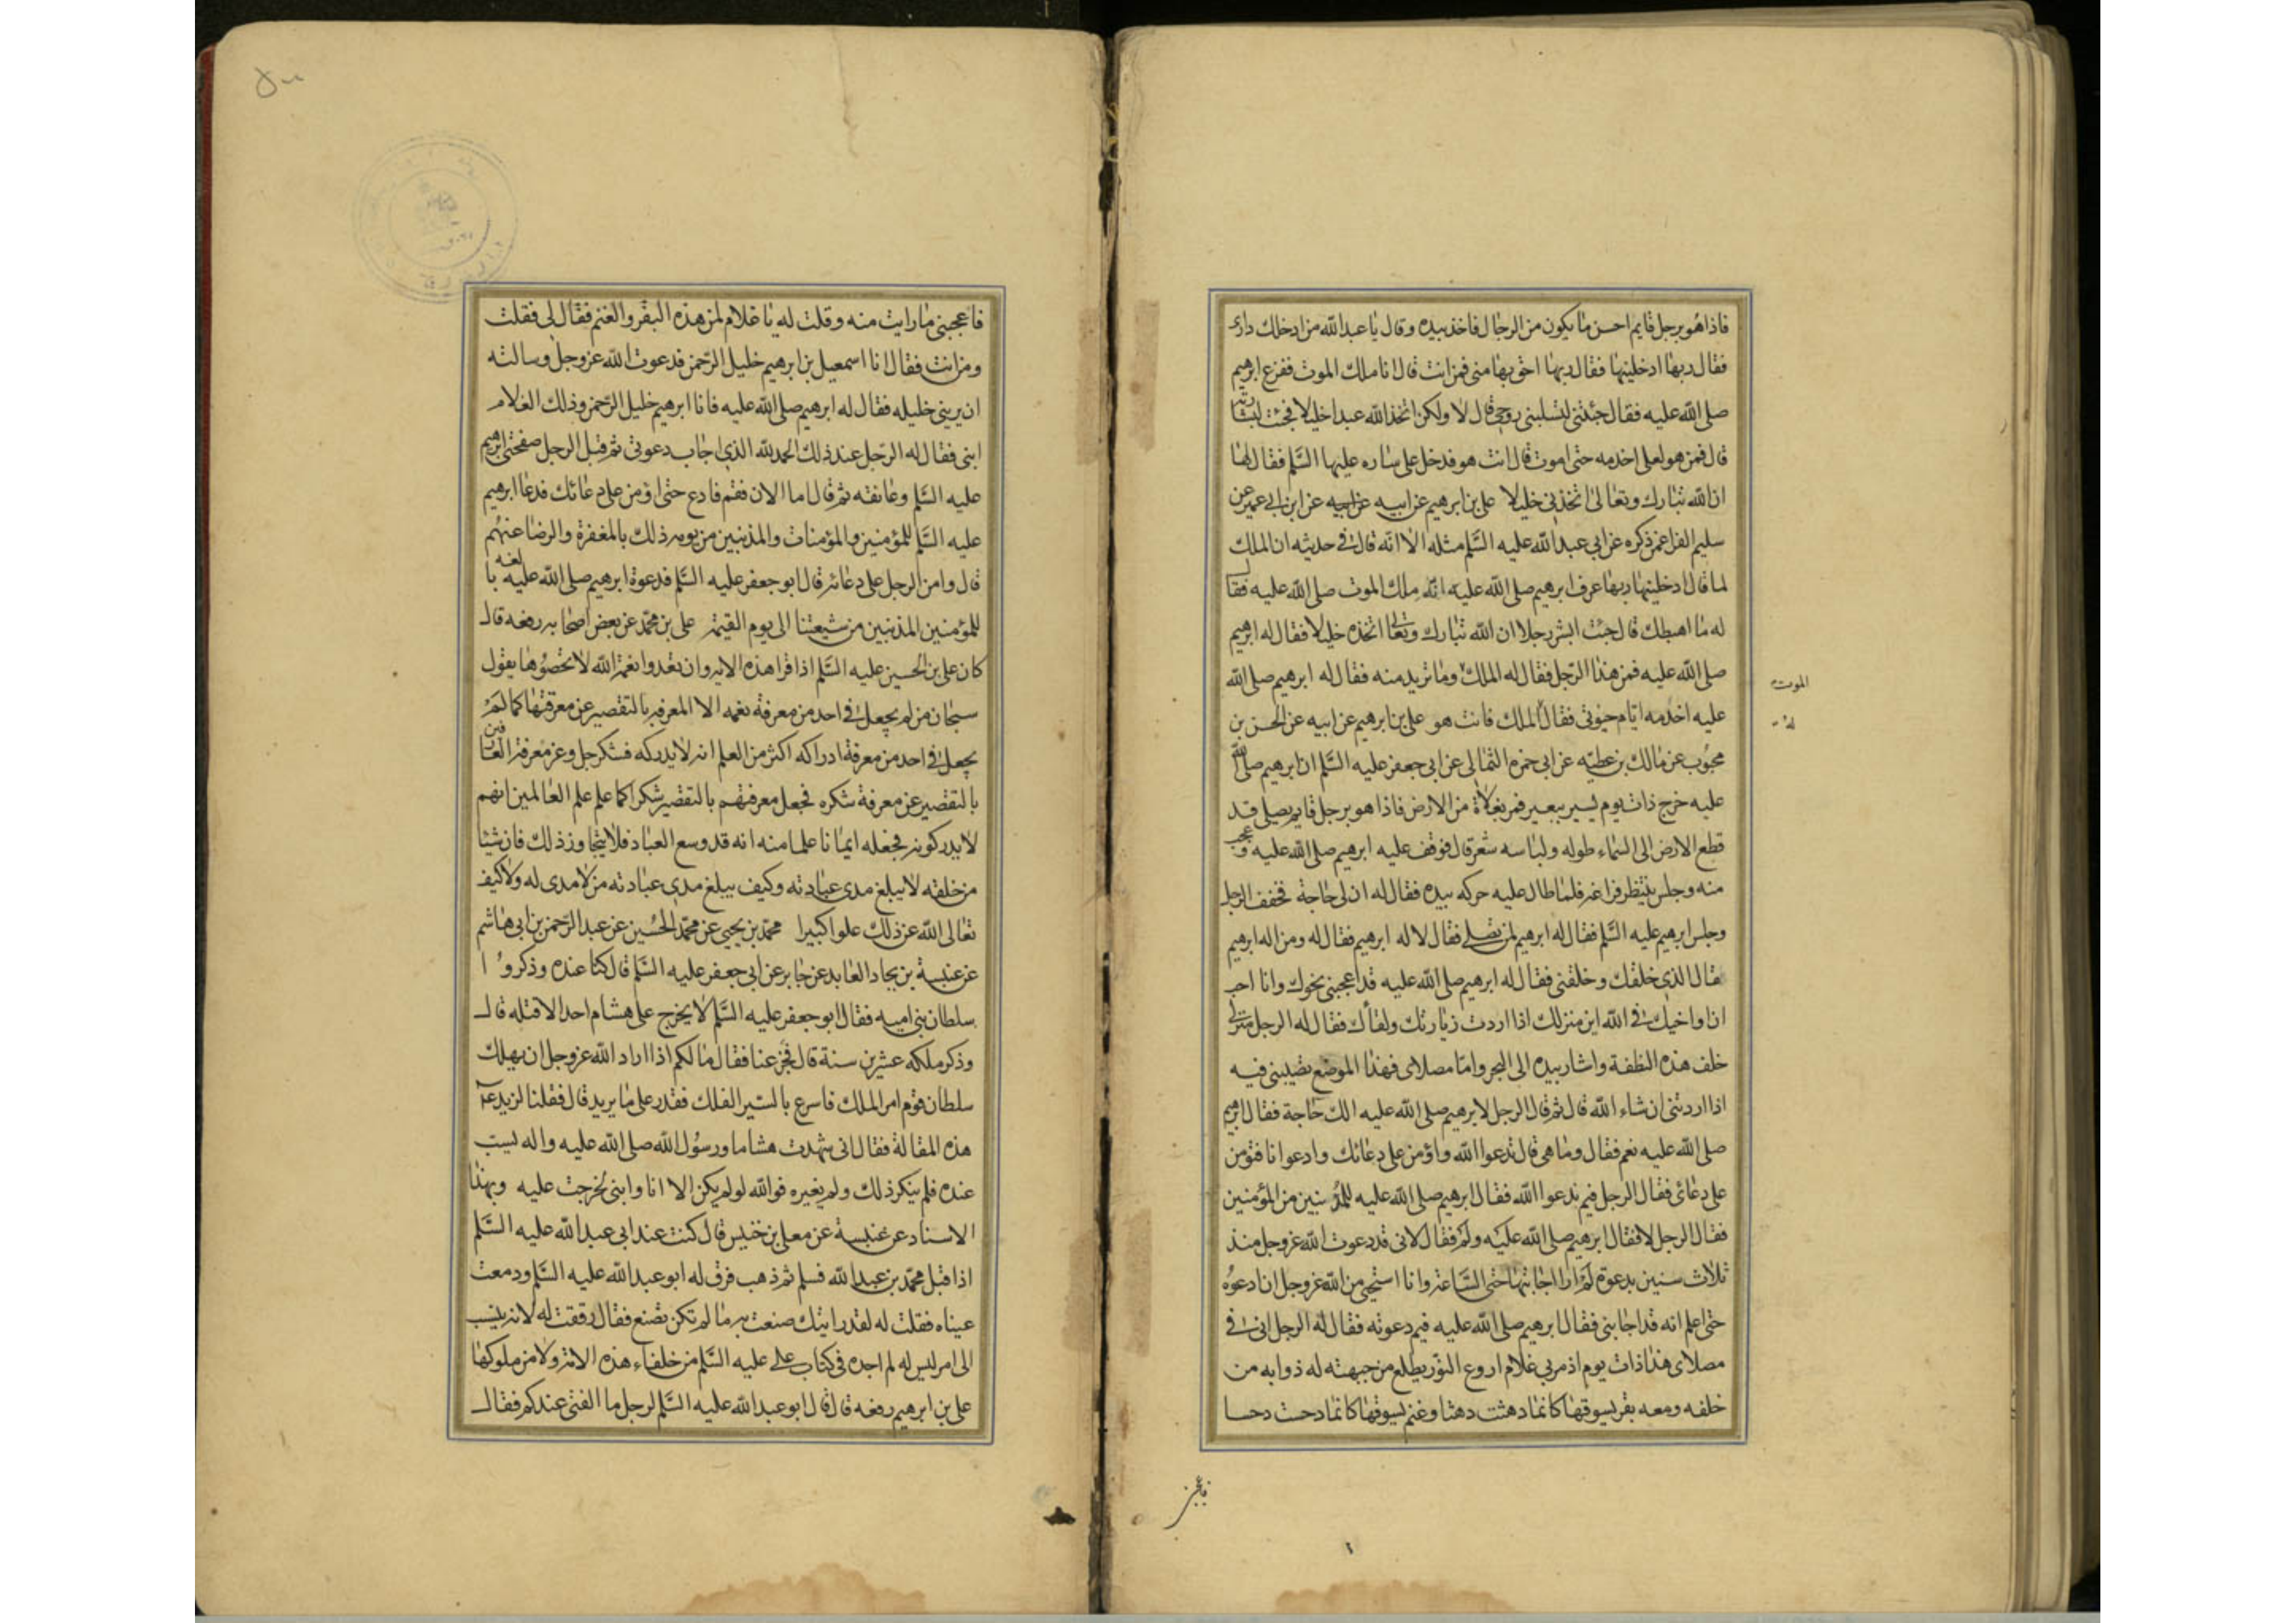 فاذا هو برجل قايم احسن ما يكون من الرجال فاخذ بيده وقال يا عبد الله من ادخلك داري
فقال ربها ادخلنيها فقال ربها احق بها مني فمن انت قال انا ملك الموت ففزع ابرهيم
صلى الله عليه فقال جئتني لتسلبني روحي قال لا ولكن اتخذ الله عبدا خليلا فجئت لبشارته
قال فمن هو لعلي اخدمه حتى اموت قال انت هو فدخل على ساره عليها السلم فقال لها
ان الله تبارك وتعالى اتخذني خليلا علي بن ابرهيم عن ابيه عن ابيه عن ابن ابي عمير عن
سليم الفرا عمن ذكره عن ابي عبد الله عليه السلم مثله الا انه قال في حديثه ان الملك
لما قال ادخلنيها ربها عرف ابرهيم صلى الله عليه انه ملك الموت صلى الله عليه فقال
له ما اهبطك قال جئت ابشر رجلا ان الله تبارك وتعالى اتخذه خليلا فقال له ابرهيم
صلى الله عليه فمن هذا الرجل فقال له الملك وما تريد منه فقال له ابرهيم صلى الله
الموت
عليه اخدمه ايام حيوتي فقال الملك فانت هو علي بن ابرهيم عن ابيه عن الحسن بن
محبوب عن مالك بن عطيه عن ابي حمزه الثمالي عن ابي جعفر عليه السلم ان ابرهيم صلى الله
عليه خرج ذات يوم يسير ببعير فمر بفلاة من الارض فاذا هو برجل قايم يصلي قد
قطع الارض الى السماء طوله ولباسه شعر قال فوقف عليه ابرهيم صلى الله عليه وعجب
منه وجلس ينتظر فراغه فلما طال عليه حركه بيده فقال له ان لي حاجة فخفف الرجل
وجلس ابرهيم عليه السلم فقال له ابرهيم لمن تصلي فقال لاله ابرهيم فقال له ومن اله ابرهيم
فقال الذي خلقك وخلقني فقال له ابرهيم صلى الله عليه قد اعجبني نحوك وانا احب
ان اواخيك في الله اين منزلك اذا اردت زيارتك ولقاك فقال له الرجل منزلي
خلف هذه النطفة واشار بيده الى البحر واما مصلاي فهذا الموضع تصيبني فيه
اذا اردتني ان شاء الله قال ثم قال الرجل لابرهيم صلى الله عليه الك حاجة فقال ابرهيم
صلى الله عليه نعم فقال وما هي قال تدعوا الله واؤمن على دعائك وادعوا انا فتؤمن
على دعائي فقال الرجل فيم ندعوا الله فقال ابرهيم صلى الله عليه للمذنبين من المؤمنين
فقال الرجل لا فقال ابرهيم صلى الله عليه ولم فقال لاني قد دعوت الله عز وجل منذ
ثلاث سنين بدعوة لم ار اجابتها حتى الساعة وانا استحيي من الله عز وجل ان ادعوه
حتى اعلم انه قد اجابني فقال ابرهيم صلى الله عليه فيم دعوته فقال له الرجل اني في
مصلاي هذا ذات يوم اذ مر بي غلام اروع النور يطلع من جبهته له ذوابه من
خلفه ومعه بقر يسوقها كانما دهنت دهنا وغنم يسوقها كانما دحست دحسا
فاعجبني
فاعجبني ما رايت منه وقلت له يا غلام لمن هذه البقر والغنم فقال لي فقلت
ومن انت فقال انا اسمعيل بن ابرهيم خليل الرحمن فدعوت الله عز وجل وسالته
ان يريني خليله فقال له ابرهيم صلى الله عليه فانا ابرهيم خليل الرحمن وذلك الغلام
ابني فقال له الرجل عند ذلك الحمد لله الذي اجاب دعوتي ثم قبل الرجل صفحتي ابرهيم
عليه السلم وعانقه ثم قال اما الان فقم فادع حتى اؤمن على دعائك فدعا ابرهيم
عليه السلم للمؤمنين والمؤمنات والمذنبين من يومه ذلك بالمغفرة والرضا عنهم
قال وامن الرجل على دعائه قال ابو جعفر عليه السلم فدعوة ابرهيم صلى الله عليه بالغه
للمؤمنين المذنبين من شيعتنا الى يوم القيمة علي بن محمد عن بعض اصحابه رفعه قال
كان علي بن الحسين عليه السلم اذا قرا هذه الايه وان تعدوا نعمة الله لا تحصوها يقول
سبحان من لم يجعل في احد من معرفة نعمه الا المعرفه بالتقصير عن معرفتها كما لم
يجعل في احد من معرفة ادراكه اكثر من العلم انه لا يدركه فشكر جل وعز معرفة العارفين
بالتقصير عن معرفة شكره فجعل معرفتهم بالتقصير شكرا كما علم علم العالمين انهم
لا يدركونه فجعله ايمانا علما منه انه قد وسع العباد فلا يتجاوز ذلك فان شيئا
من خلقه لا يبلغ مدى عبادته وكيف يبلغ مدى عبادته من لا مدى له ولا كيف
تعالى الله عن ذلك علوا كبيرا محمد بن يحيى عن محمد الحسين عن عبد الرحمن بن ابي هاشم
عن عنبسة بن بجاد العابد عن جابر عن ابي جعفر عليه السلم قال كنا عنده وذكروا
سلطان بني اميه فقال ابو جعفر عليه السلم لا يخرج على هشام احد الا قتله قال
وذكر ملكه عشرين سنة قال فجزعنا فقال ما لكم اذا اراد الله عز وجل ان يهلك
سلطان قوم امر الملك فاسرع بالسير الفلك فقدر على ما يريد قال فقلنا لزيد عم
هذه المقالة فقال اني شهدت هشاما ورسول الله صلى الله عليه واله يسب
عنده فلم ينكر ذلك ولم يغيره فوالله لو لم يكن الا انا وابني لخرجت عليه وبهذا
الاسناد عن عنبسة عن معلى بن خنيس قال كنت عند ابي عبد الله عليه السلم
اذ اقبل محمد بن عبد الله فسلم ثم ذهب فرق له ابو عبد الله عليه السلم ودمعت
عيناه فقلت له لقد رايتك صنعت به ما لم تكن تصنع فقال رققت له لانه ينسب
الى امر ليس له لم اجده في كتاب علي عليه السلم من خلفاء هذه الامة ولا من ملوكها
علي بن ابرهيم رفعه قال قال ابو عبد الله عليه السلم لرجل ما الفتى عندكم فقال